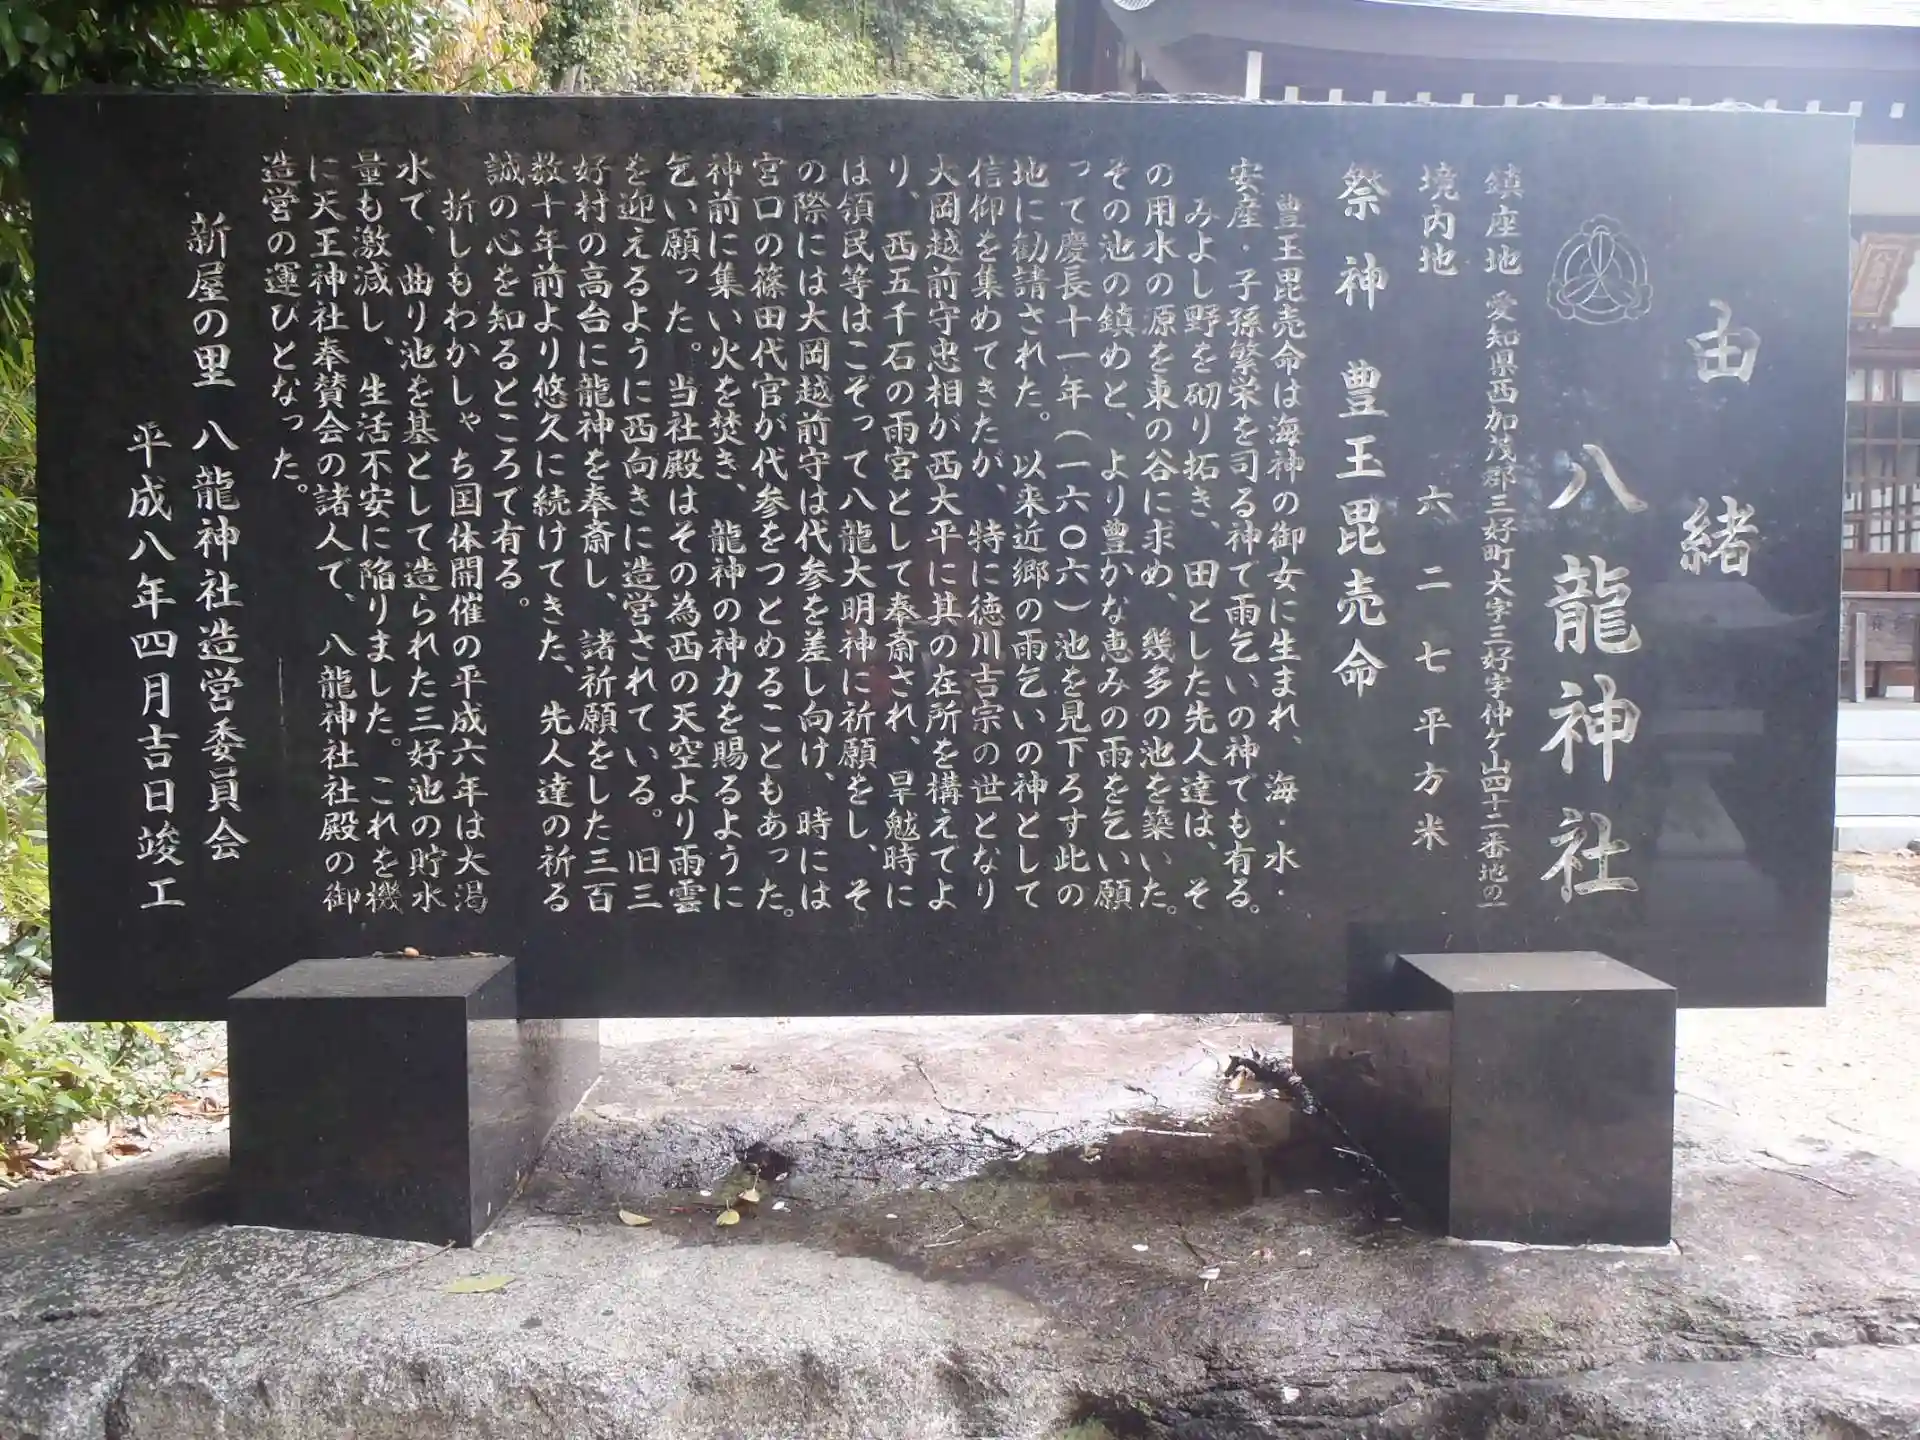 由緒
八龍神社
鎮座地 愛知県西加茂郡三好町大字三好字仲ケ山四十二番地の一
境内地 六二七平方米
祭神 豊玉毘売命
豊玉毘売命は海神の御女に生まれ、海・水・
安産・子孫繁栄を司る神で雨乞いの神でも有る。
みよし野を砌り拓き、田とした先人達は、そ
の用水の源を東の谷に求め、幾多の池を築いた。
その池の鎮めと、より豊かな恵みの雨を乞い願
って慶長十一年(一六〇六)池を見下ろす此の
地に勧請された。以来近郷の雨乞いの神として
信仰を集めてきたが、特に徳川吉宗の世となり
大岡越前守忠相が西大平に其の在所を構えてよ
り、西五千石の雨宮として奉斎され、旱魃時に
は領民等はこぞって八龍大明神に祈願をし、そ
の際には大岡越前守は代参を差し向け、時には
宮口の篠田代官が代参をつとめることもあった。
神前に集い火を焚き、龍神の神力を賜るように
乞い願った。当社殿はその為西の天空より雨雲
を迎えるように西向きに造営されている。旧三
好村の高台に龍神を奉斎し、諸祈願をした三百
数十年前より悠久に続けてきた、先人達の祈る
誠の心を知るところで有る。
折しもわかしゃち国体開催の平成六年は大渇
水で、曲り池を基として造られた三好池の貯水
量も激減し、生活不安に陥りました。これを機
に天王神社奉賛会の諸人で、八龍神社社殿の御
造営の運びとなった。
新屋の里 八龍神社造営委員会
平成八年四月吉日竣工